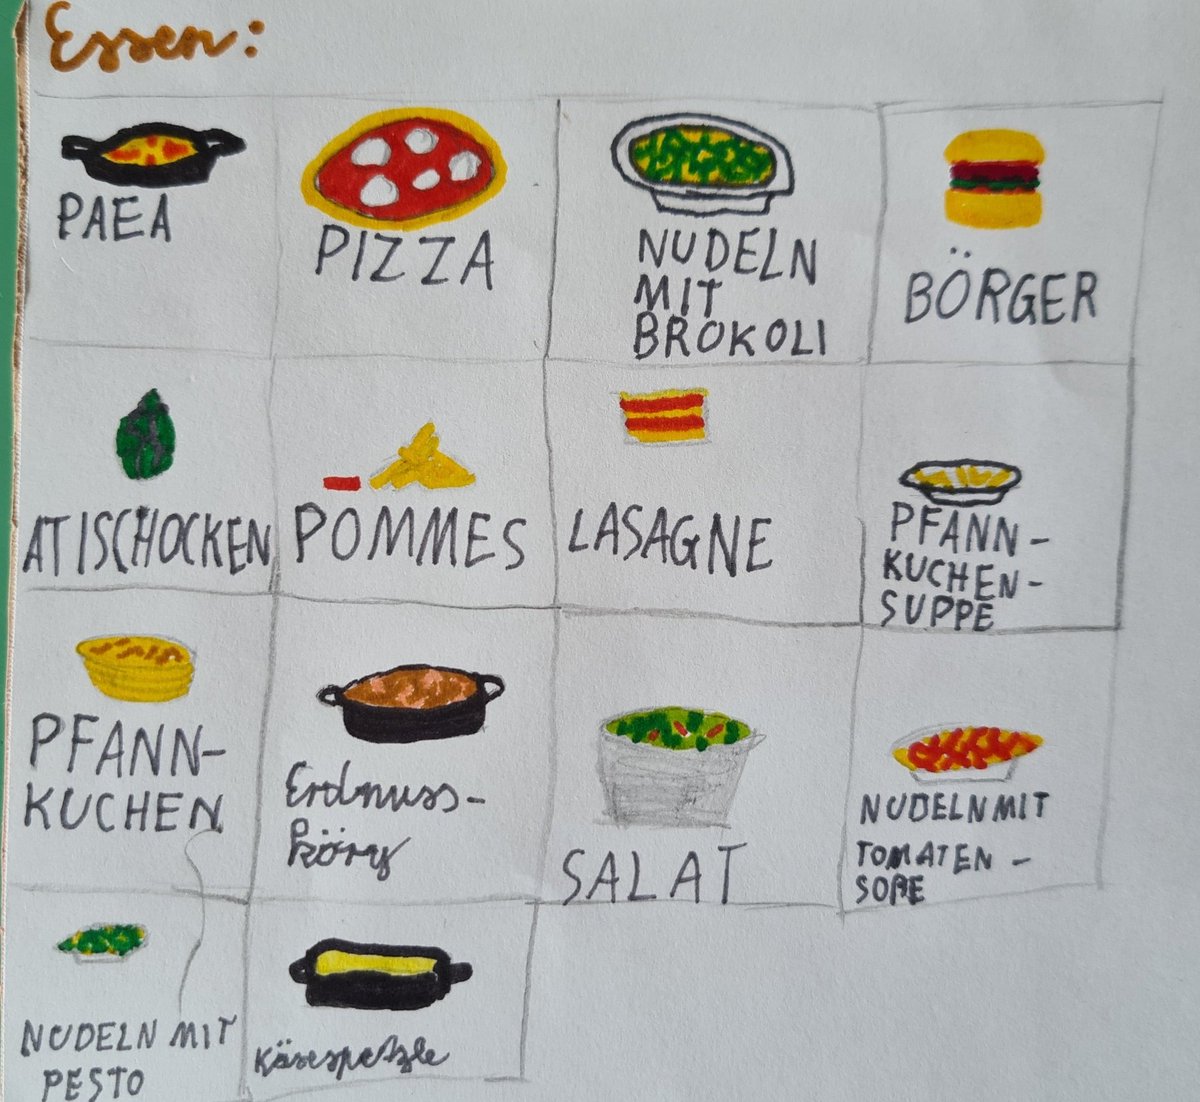 Essen:
PAEA
PIZZA
NUDELN
MIT
BROKOLI
BÖRGER
ATISCHOCKEN
POMMES
LASAGNE
PFANN-
KUCHEN-
SUPPE
PFANN-
KUCHEN
Erdnuss-
köry
SALAT
NUDELN MIT
TOMATEN-
SOßE
NUDELN MIT
PESTO
Käsespetzle